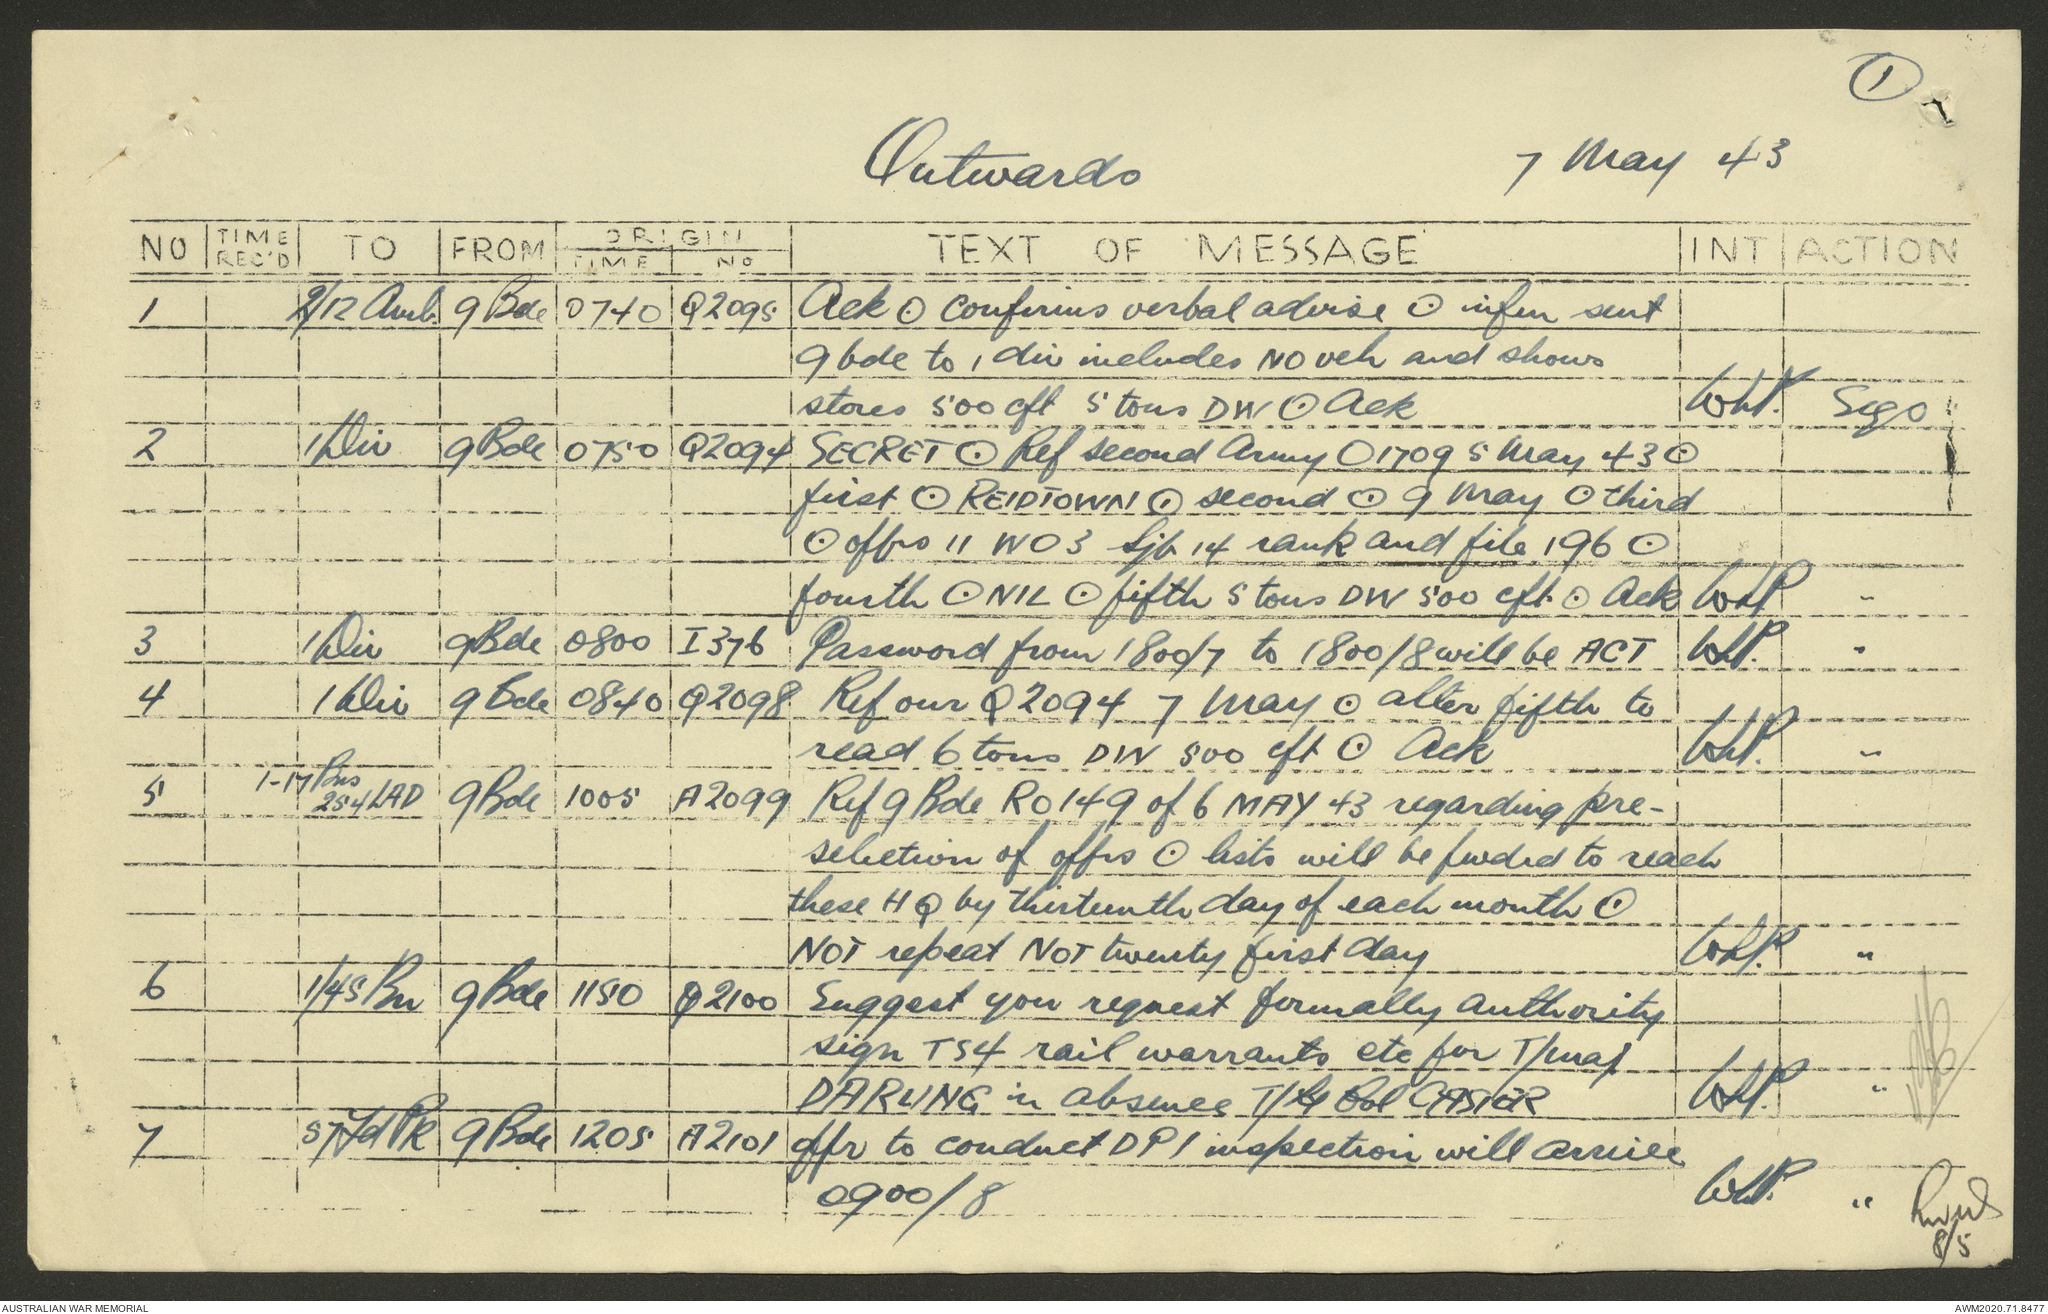 1
Outwards 7 May 43
NO TIME REC'D TO FROM ORIGIN TIME No TEXT OF MESSAGE INT ACTION
1 2/12 Amb. 9 Bde 0740 Q2095 Ack ⊙ confirms verbal advise ⊙ infm sent
9 bde to 1 div includes NO veh and shows
stores 500 cft 5 tons DW ⊙ Ack WHP. Sigs
2 1 Div 9 Bde 0750 Q2094 SECRET ⊙ Ref second Army O1709 5 May 43 ⊙
first ⊙ REIDTOWN ⊙ second ⊙ 9 May ⊙ third
⊙ offrs 11 WO 3 Sjt 14 rank and file 196 ⊙
fourth ⊙ NIL ⊙ fifth 5 tons DW 500 cft ⊙ Ack WHP "
3 1 Div 9 Bde 0800 I376 Password from 1800/7 to 1800/8 will be ACT WHP. "
4 1 Div 9 Bde 0840 Q2098 Ref our Q2094 7 May ⊙ alter fifth to
read 6 tons DW 500 cft ⊙ Ack WHP. "
5 1-17 Bns
254 LAD 9 Bde 1005 A2099 Ref 9 Bde RO 149 of 6 MAY 43 regarding pre-
selection of offrs ⊙ lists will be fwded to reach
these HQ by thirteenth day of each month ⊙
NOT repeat NOT twenty first day WHP. "
6 1/45 Bn 9 Bde 1150 Q2100 Suggest you request formally authority
sign TS4 rail warrants etc for T/maj
DARLING in absence T/Lt Col CASIER WHP. "
7 57 Fd Pk 9 Bde 1205 A2101 offr to conduct DPI inspection will arrive
0900/8 WHP. "
8/5
AUSTRALIAN WAR MEMORIAL AWM2020.71.8477